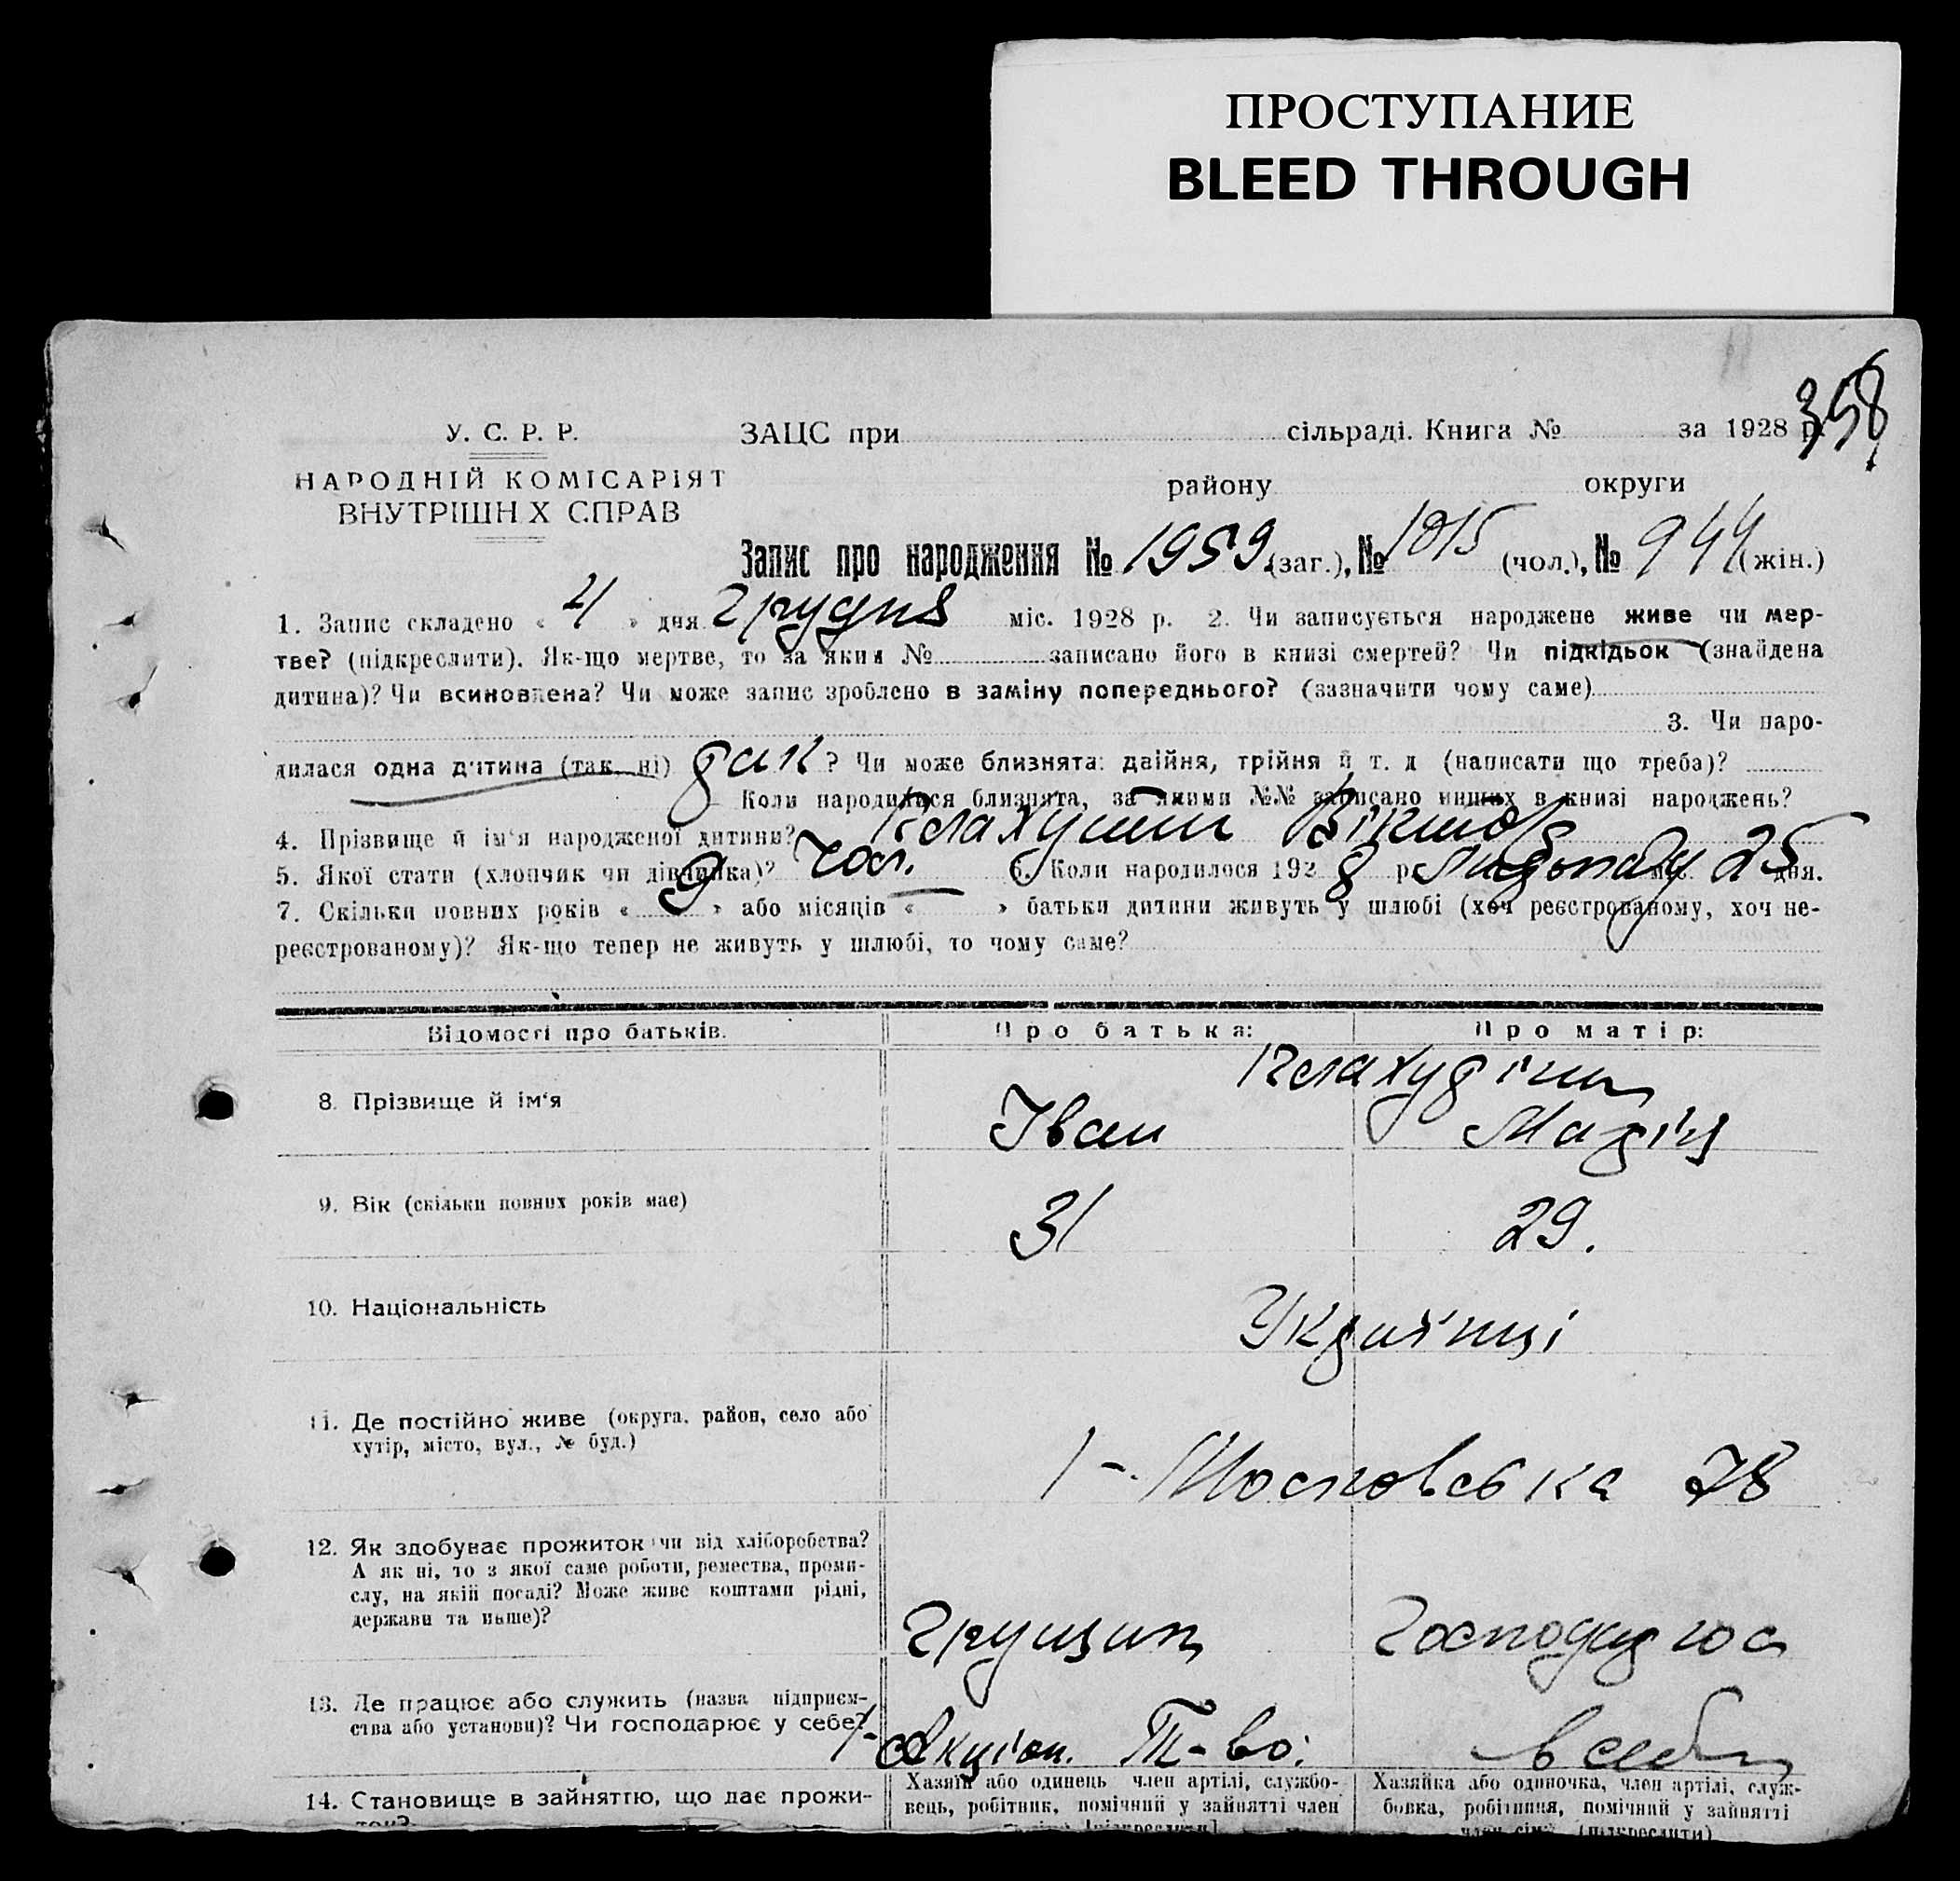 ПРОСТУПАНИЕ
BLEED THROUGH
358
У. С. Р. Р.
НАРОДНІЙ КОМІСАРІЯТ
ВНУТРІШН Х СПРАВ
ЗАЦС при сільраді. Книга № за 1928 р.
району округи
Запис про народження № 1959 (заг.), № 1015 (чол.), № 944 (жін.)
1. Запис складено « 4 » дня Грудня міс. 1928 р. 2. Чи записується народжене живе чи мер-
тве? (підкреслити). Як-що мертве, то за яким № записано його в книзі смертей? Чи підкідьок (знайдена
дитина)? Чи всиновлена? Чи може запис зроблено в заміну попереднього? (зазначити чому саме)
3. Чи наро-
дилася одна дитина (так, ні) так? Чи може близнята: двійня, трійня й т. д (написати що треба)?
Коли народилися близнята, за якими №№ записано инших в книзі народжень?
4. Прізвище й ім'я народженої дитини? Віктор
5. Якої стати (хлопчик чи дівчинка)? чол. 6. Коли народилося 1928 р. Листопаду міс. 25 дня.
7. Скільки повних років « 9 » або місяців « » батьки дитини живуть у шлюбі (хоч реєстрованому, хоч не-
реєстрованому)? Як-що тепер не живуть у шлюбі, то чому саме?
Відомості про батьків. Про батька: Про матір:
8. Прізвище й ім'я
Іван Марія
9. Вік (скільки повних років має) 31 29.
10. Національність Українці
11. Де постійно живе (округа, район, село або
хутір, місто, вул., № буд.)
1-Московська 78
12. Як здобуває прожиток чи від хліборобства?
А як ні, то з якої саме роботи, ремества, проми-
слу, на якій посаді? Може живе коштами рідні,
держави та инше)?
Грущик Господарює
13. Де працює або служить (назва підприєм-
ства або установи)? Чи господарює у себе?
Акціон. Т-во. в себе
14. Становище в зайняттю, що дає прожи-
ток?
Хазяїн або одинець член артілі, службо-
вець, робітник, помічний у зайнятті член
Хазяйка або одиночка, член артілі, служ-
бовка, робітниця, помічний у зайнятті
член сім'ї (підкреслити)